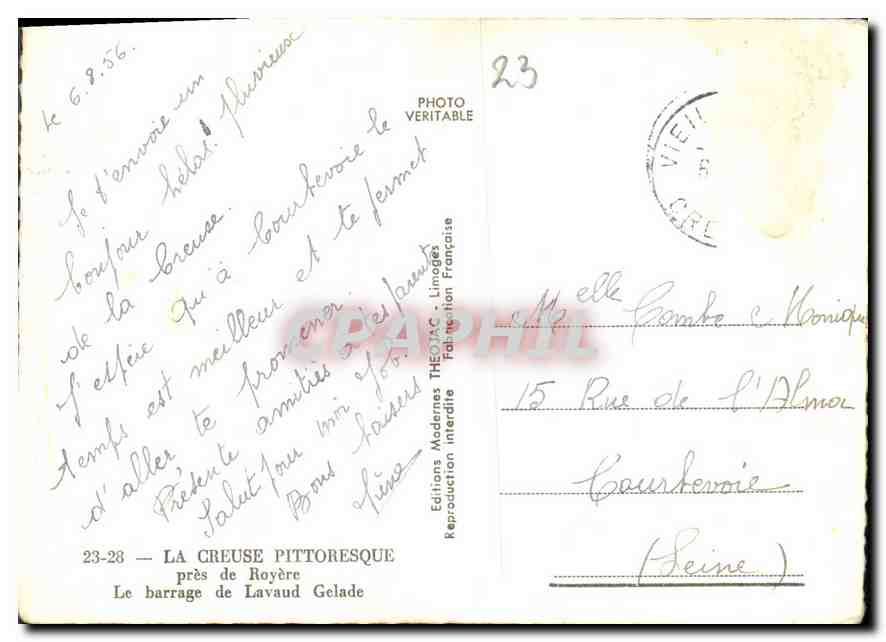 Le 6.8.56.
Je t'envoie un
bonjour hélas! pluvieuse
de la Creuse.
J'espère qu'à Courbevoie le
temps est meilleur et te permet
d'aller te promener.
Présente amitiés à tes parents
Salut pour moi
Bons baisers
PHOTO
VERITABLE
Editions Modernes THEOJAC - Limoges
Reproduction interdite Fabrication Française
23-28 — LA CREUSE PITTORESQUE
près de Royère
Le barrage de Lavaud Gelade
23
VIEIL
CRE
Melle Combe Monique
15 Rue de l'Alma
Courbevoie
(Seine)
CPAPHIL